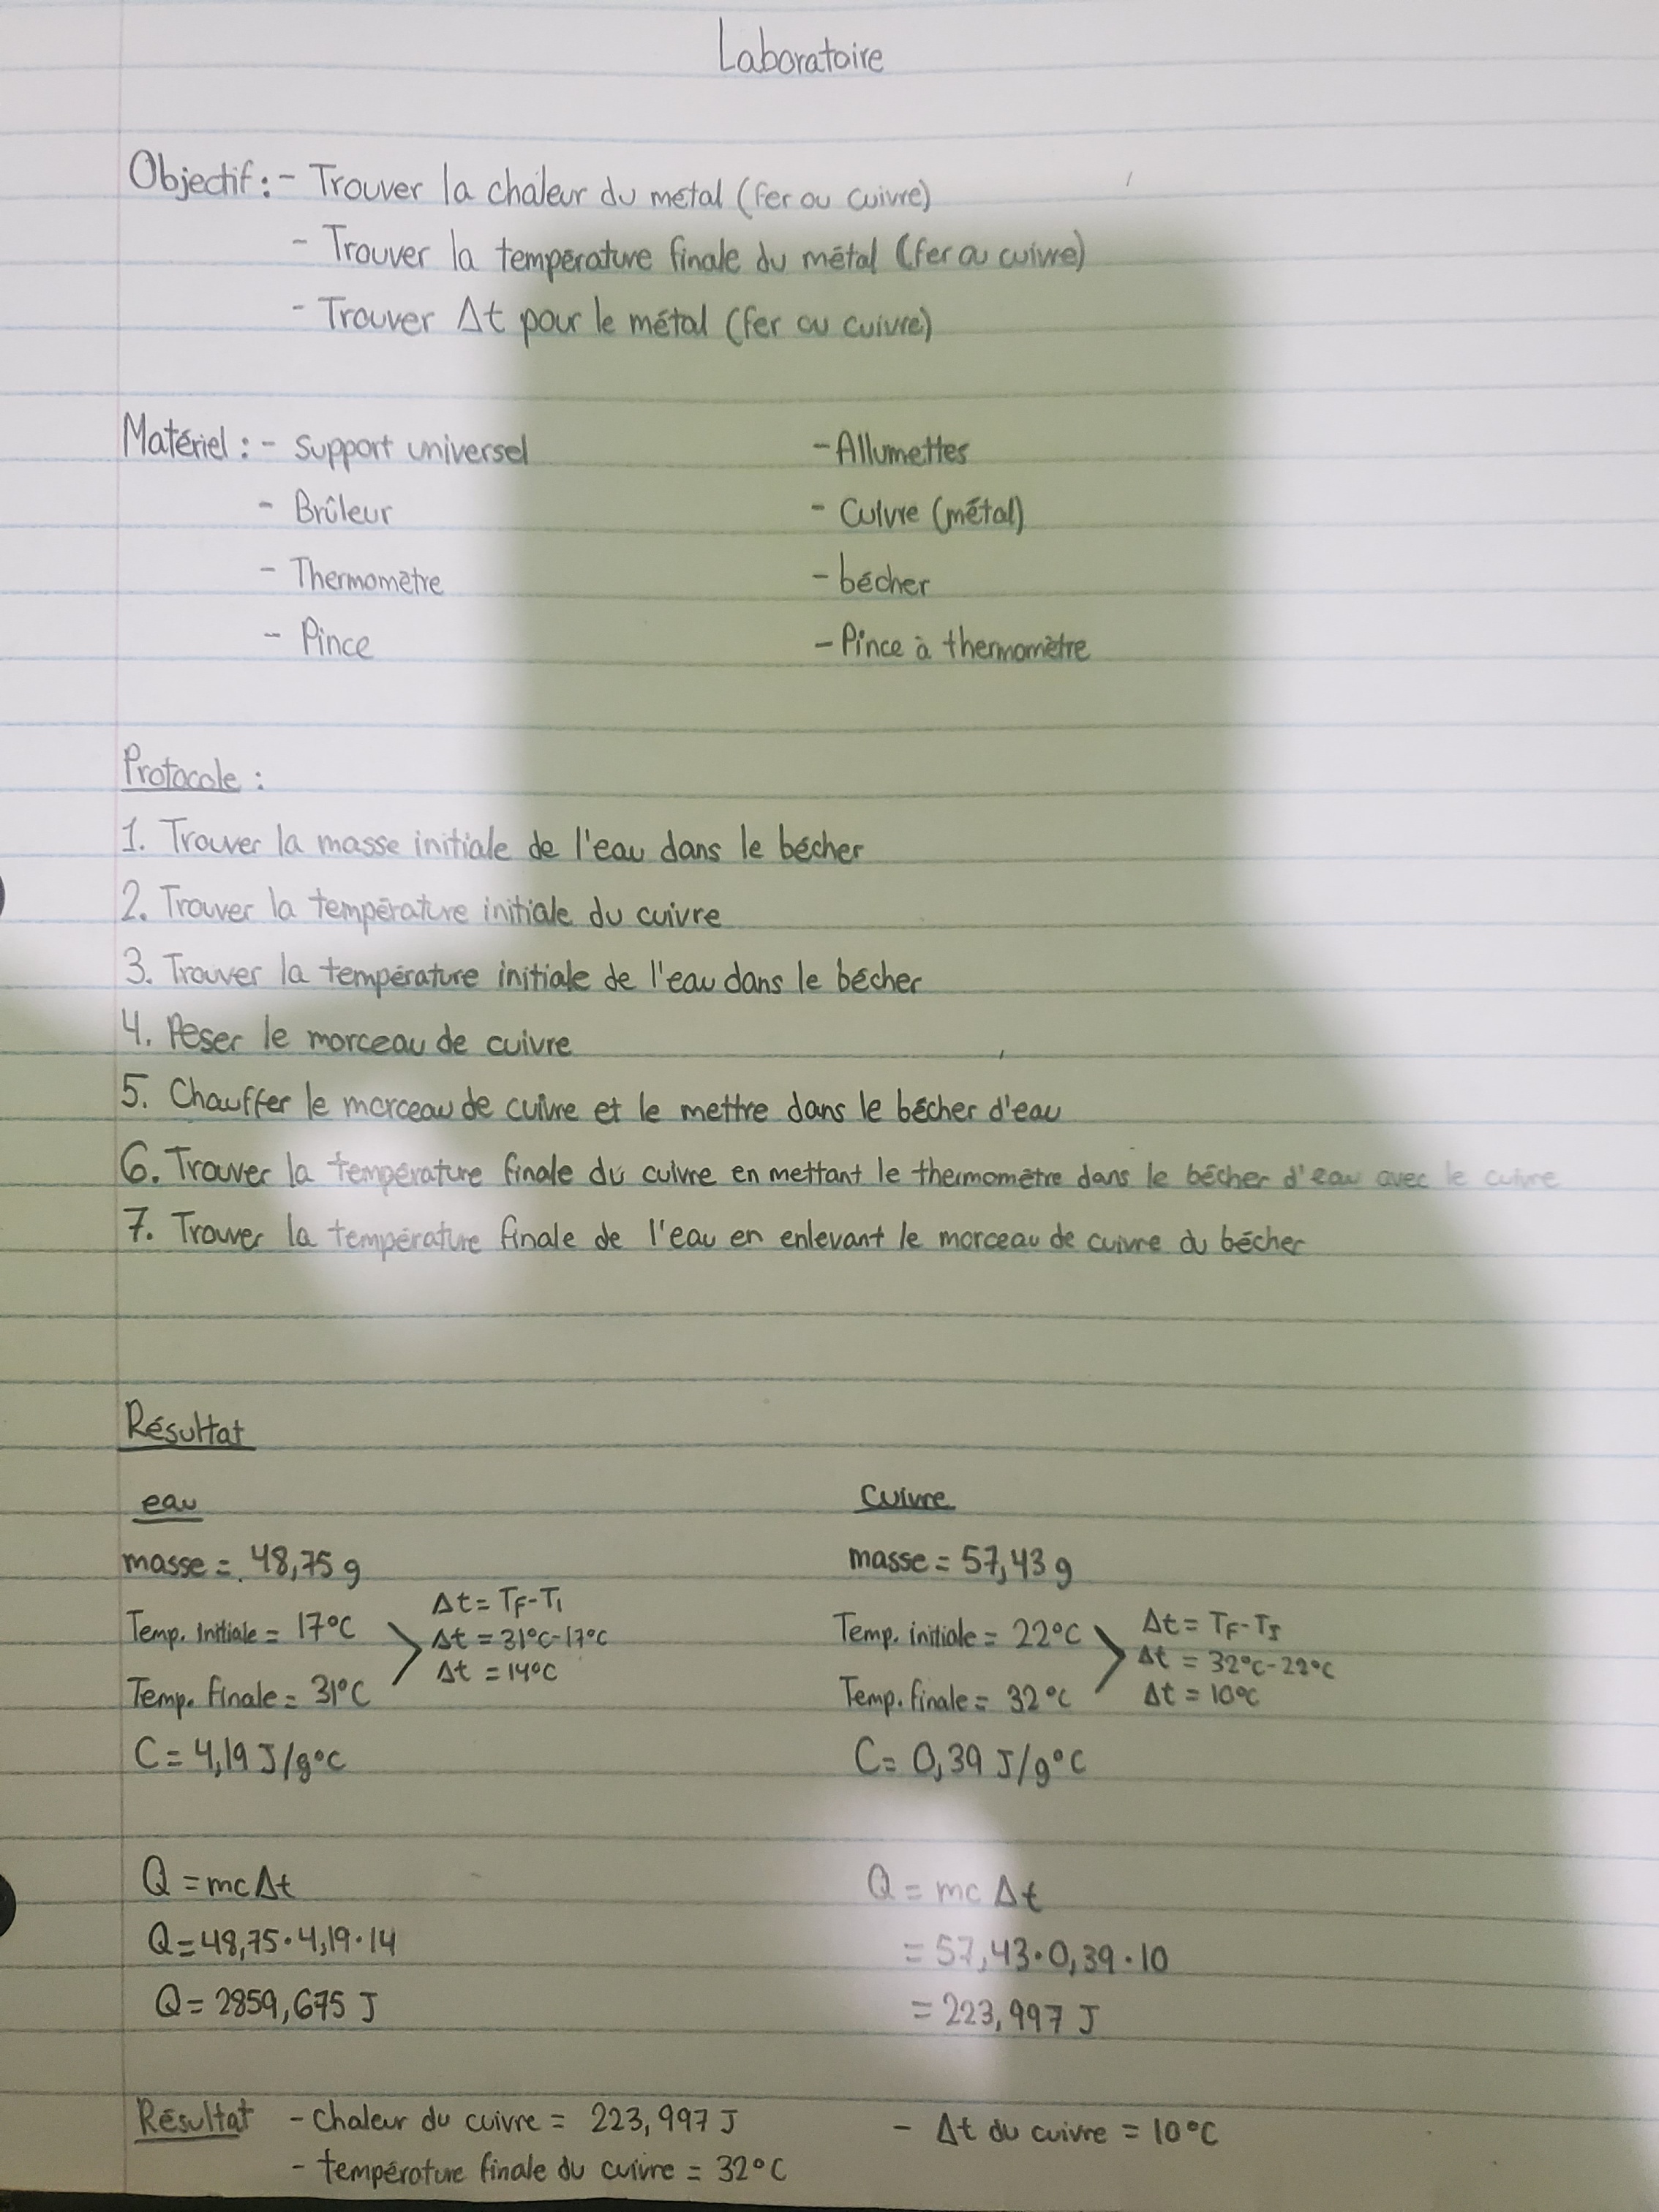 Laboratoire
Objectif : - Trouver la chaleur du métal (fer ou cuivre)
- Trouver la température finale du métal (fer ou cuivre)
- Trouver Δt pour le métal (fer ou cuivre)
Matériel : - Support universel
- Brûleur
- Thermomètre
- Pince
- Allumettes
- Cuivre (métal)
- bécher
- Pince à thermomètre
Protocole :
1. Trouver la masse initiale de l'eau dans le bécher
2. Trouver la température initiale du cuivre
3. Trouver la température initiale de l'eau dans le bécher
4. Peser le morceau de cuivre
5. Chauffer le morceau de cuivre et le mettre dans le bécher d'eau
6. Trouver la température finale du cuivre en mettant le thermomètre dans le bécher d'eau avec le cuivre
7. Trouver la température finale de l'eau en enlevant le morceau de cuivre du bécher
Résultat
eau
masse = 48,75 g
Temp. Initiale = 17°C
Temp. finale = 31°C
Δt = TF-TI
Δt = 31°C-17°C
Δt = 14°C
C = 4,19 J/g°C
Q = mcΔt
Q = 48,75·4,19·14
Q = 2859,675 J
Cuivre
masse = 57,43 g
Temp. initiale = 22°C
Temp. finale = 32°C
Δt = TF-TI
Δt = 32°C-22°C
Δt = 10°C
C = 0,39 J/g°C
Q = mcΔt
= 57,43·0,39·10
= 223,997 J
Résultat - chaleur du cuivre = 223,997 J
- température finale du cuivre = 32°C
- Δt du cuivre = 10°C